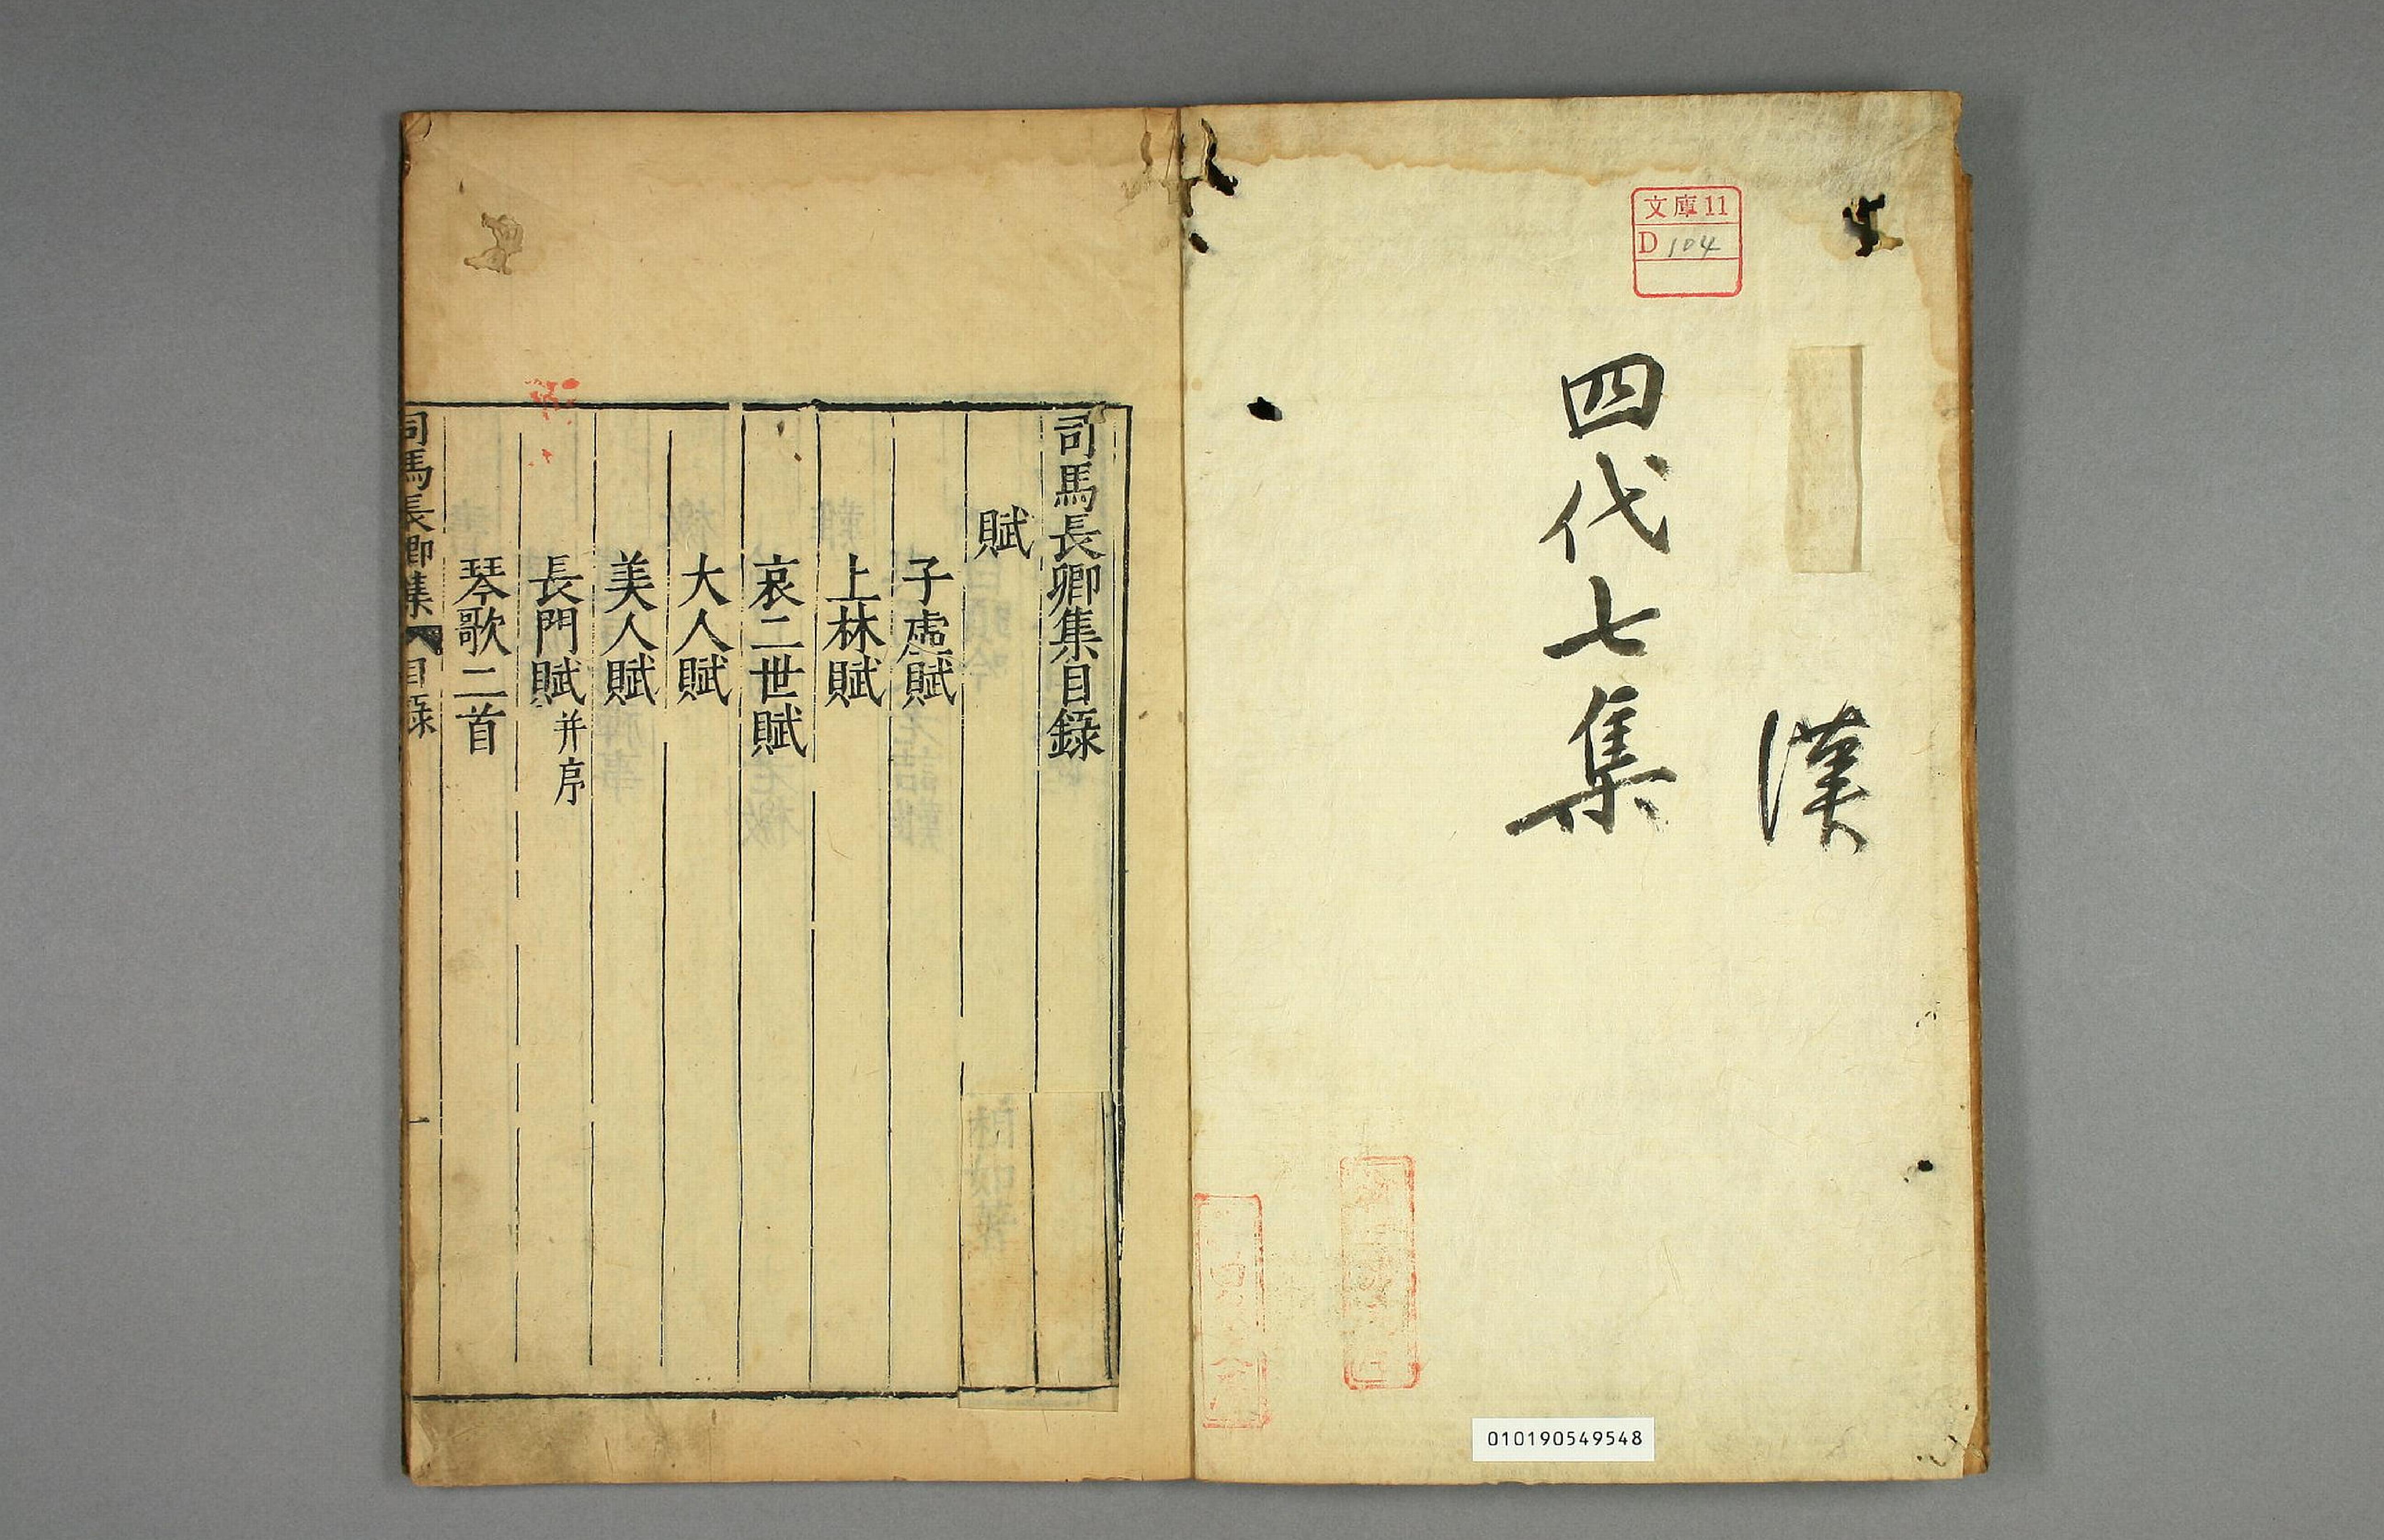 文庫11
D 104
漢
四代七集
010190549548
司馬長卿集目錄
賦
子虛賦
上林賦
哀二世賦
大人賦
美人賦
長門賦并序
琴歌二首
司馬長卿集 目錄 一